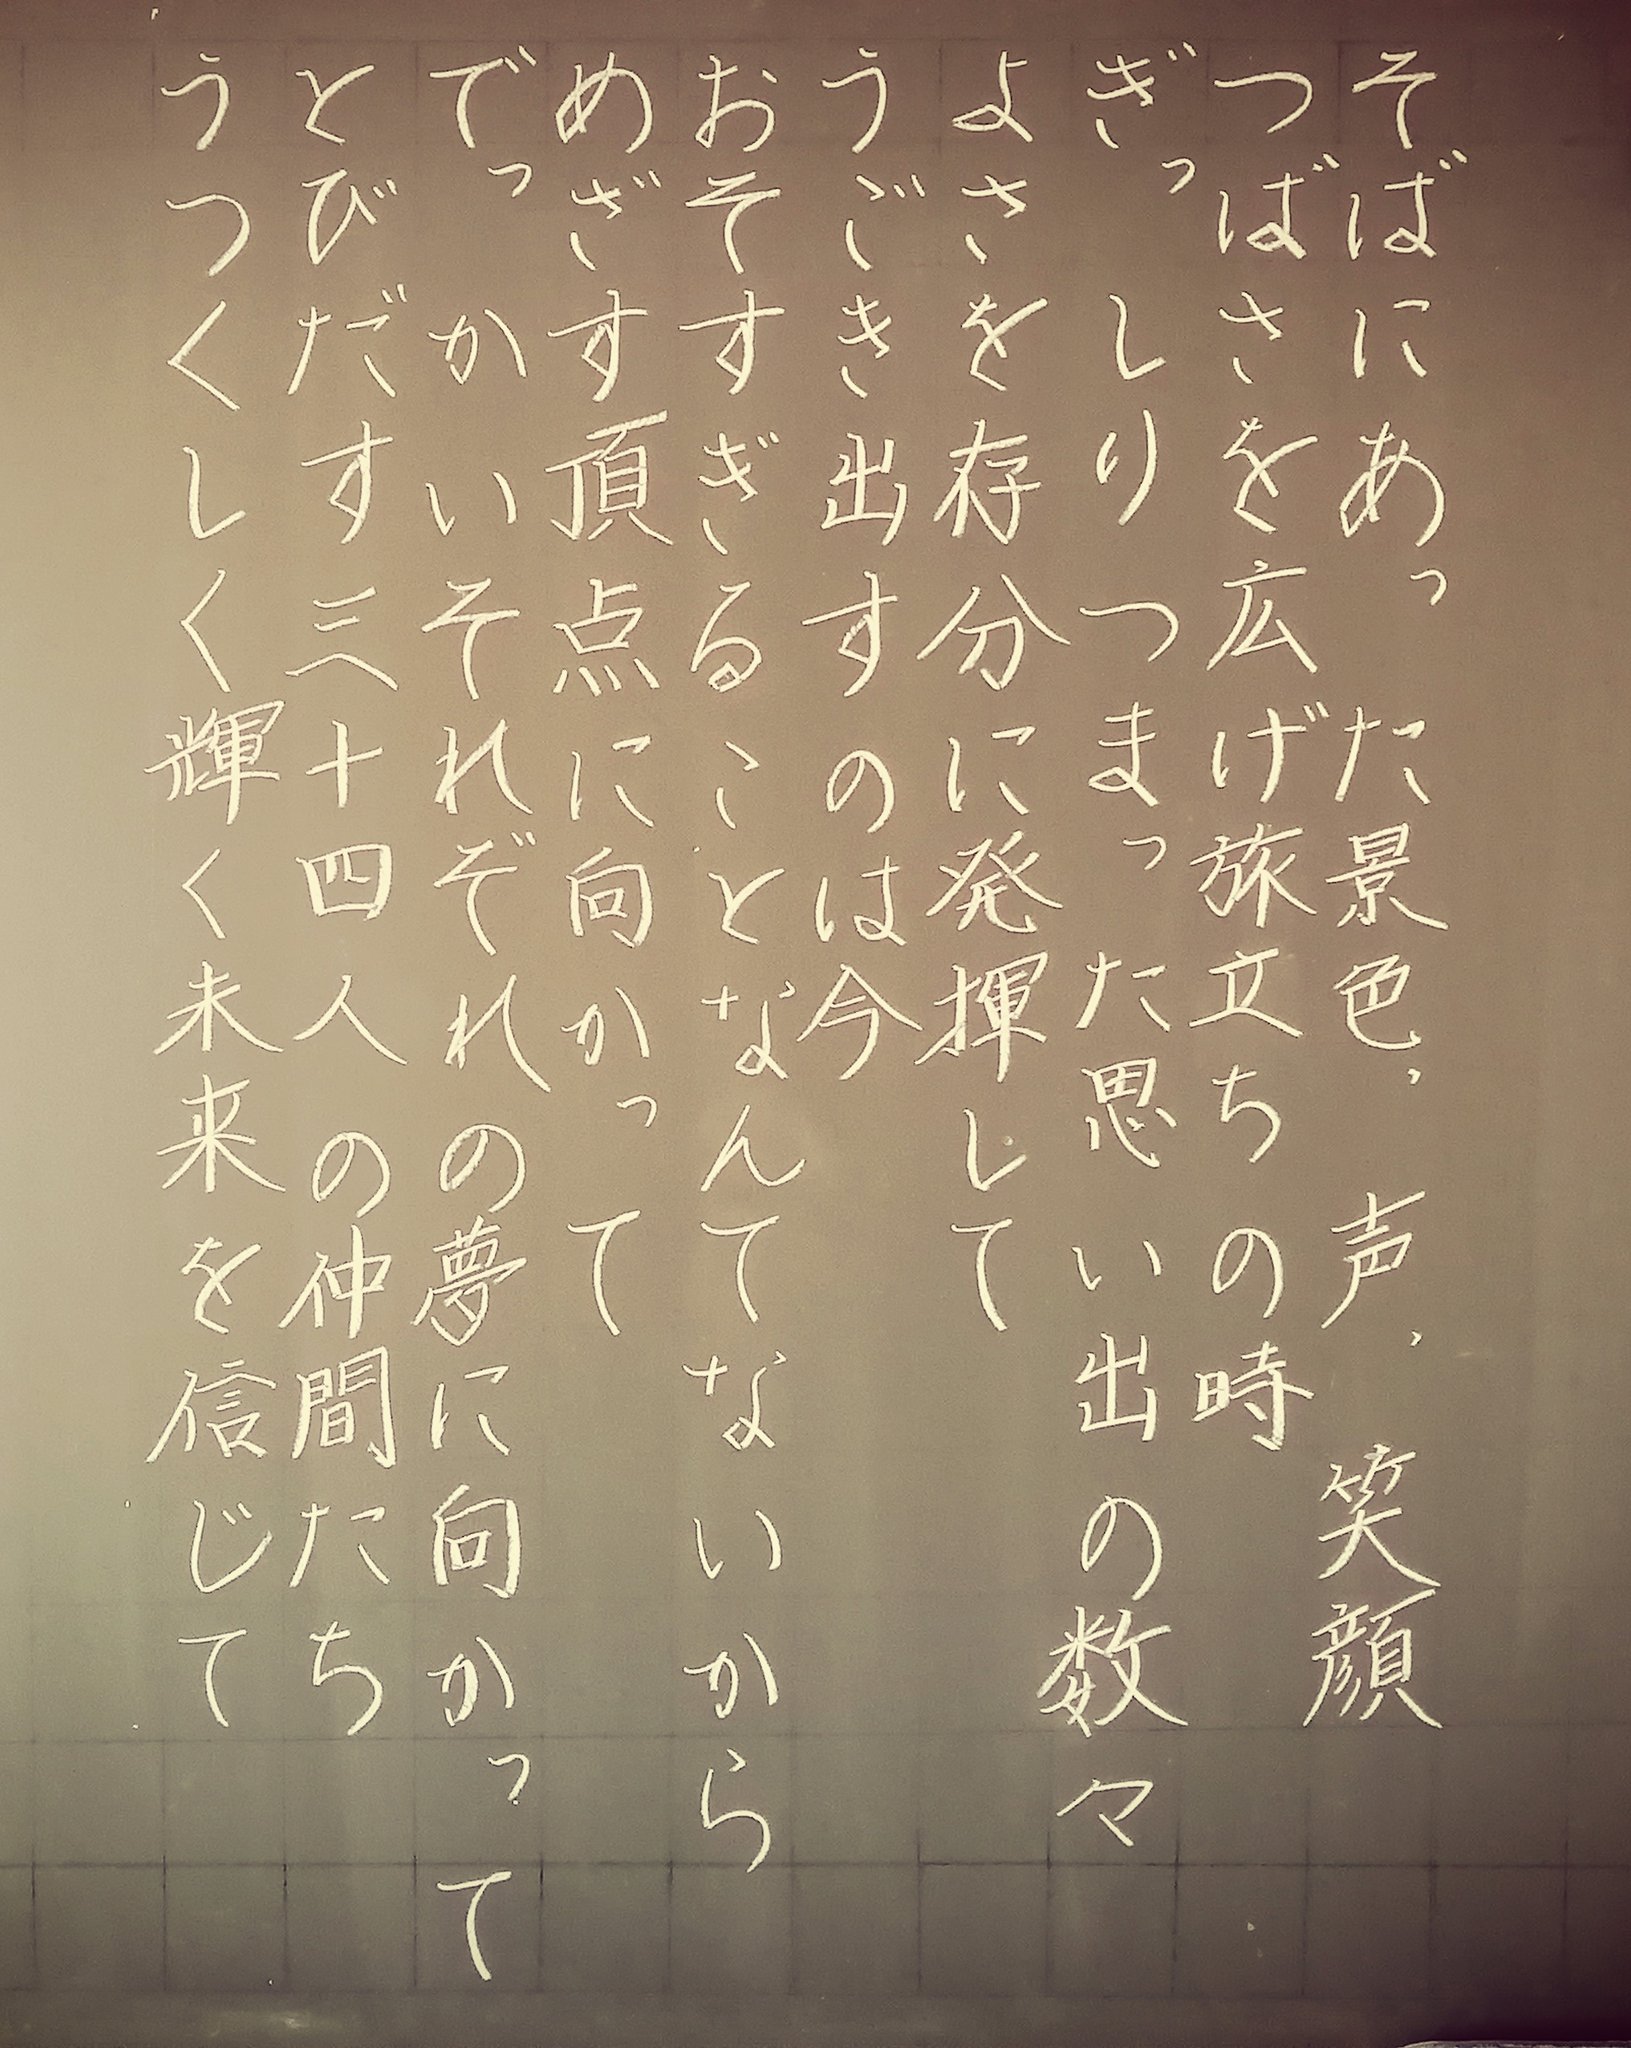 そばにあった景色、声、笑顔
つばさを広げ旅立ちの時
ぎっしりつまった思い出の数々
よさを存分に発揮して
うごき出すのは今
おそすぎることなんてないから
めざす頂点に向かって
でっかいそれぞれの夢に向かって
とびだす三十四人の仲間たち
うつくしく輝く未来を信じて